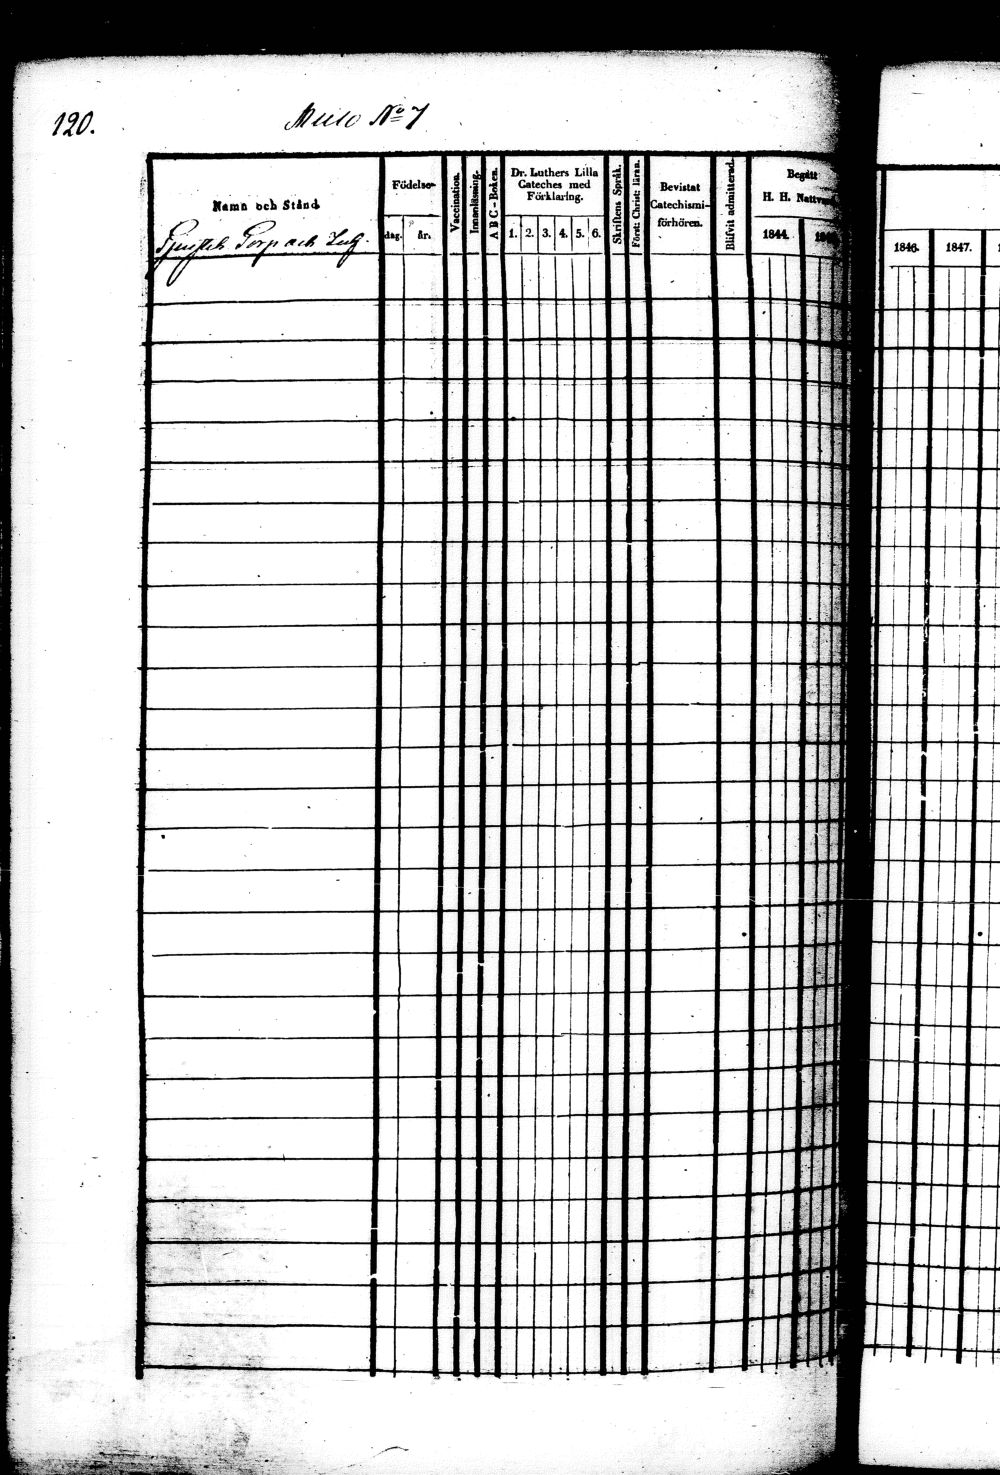 120.
No 7
Namn och Stånd
Torp och
Födelse-
dag. år.
Vaccination.
Innanläsning.
ABC-Boken.
Dr. Luthers Lilla
Cateches med
Förklaring.
1. 2. 3. 4. 5. 6.
Skriftens Språk.
Först: Christ: läran.
Bevistat
Catechismi-
förhören.
Blifvit admitterad.
Begått
H. H. Nattv
1844.
1846. 1847.